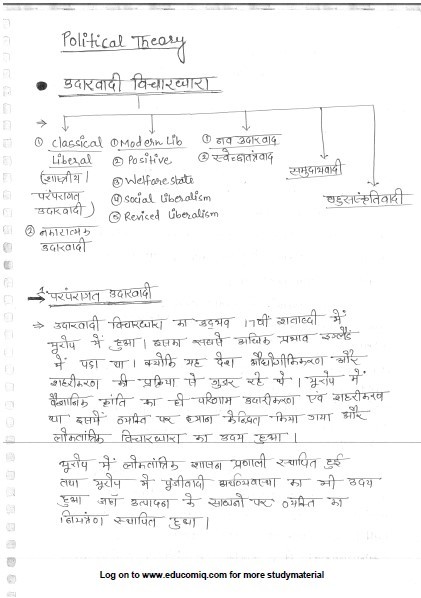 Political Theory
● उदारवादी विचारधारा
→
① Classical
Liberal
(शास्त्रीय /
परंपरागत
उदारवादी)
② नकारात्मक
उदारवादी
① Modern Lib
② Positive
③ Welfare state
④ Social Liberalism
⑤ Reviced Liberalism
① नव उदारवाद
② स्वेच्छातंत्रवाद
समुदायवादी
बहुसंस्कृतिवादी
1. परंपरागत उदारवादी
⇒ उदारवादी विचारधारा का उद्भव 17वीं शताब्दी में
यूरोप में हुआ। इसका सबसे अधिक प्रभाव इंग्लैंड
में पड़ा था। क्योंकि यह देश औद्योगिकीकरण और
शहरीकरण की प्रक्रिया से गुजर रहे थे। यूरोप में
वैज्ञानिक क्रांति का ही परिणाम उदारीकरण एवं शहरीकरण
था इसमें व्यक्ति पर ध्यान केन्द्रित किया गया और
लोकतांत्रिक विचारधारा का उदय हुआ।
यूरोप में लोकतांत्रिक शासन प्रणाली स्थापित हुई
तथा यूरोप में पूंजीवादी अर्थव्यवस्था का भी उदय
हुआ जहाँ उत्पादन के साधनों पर व्यक्ति का
नियंत्रण स्थापित हुआ।
Log on to www.educomiq.com for more studymaterial